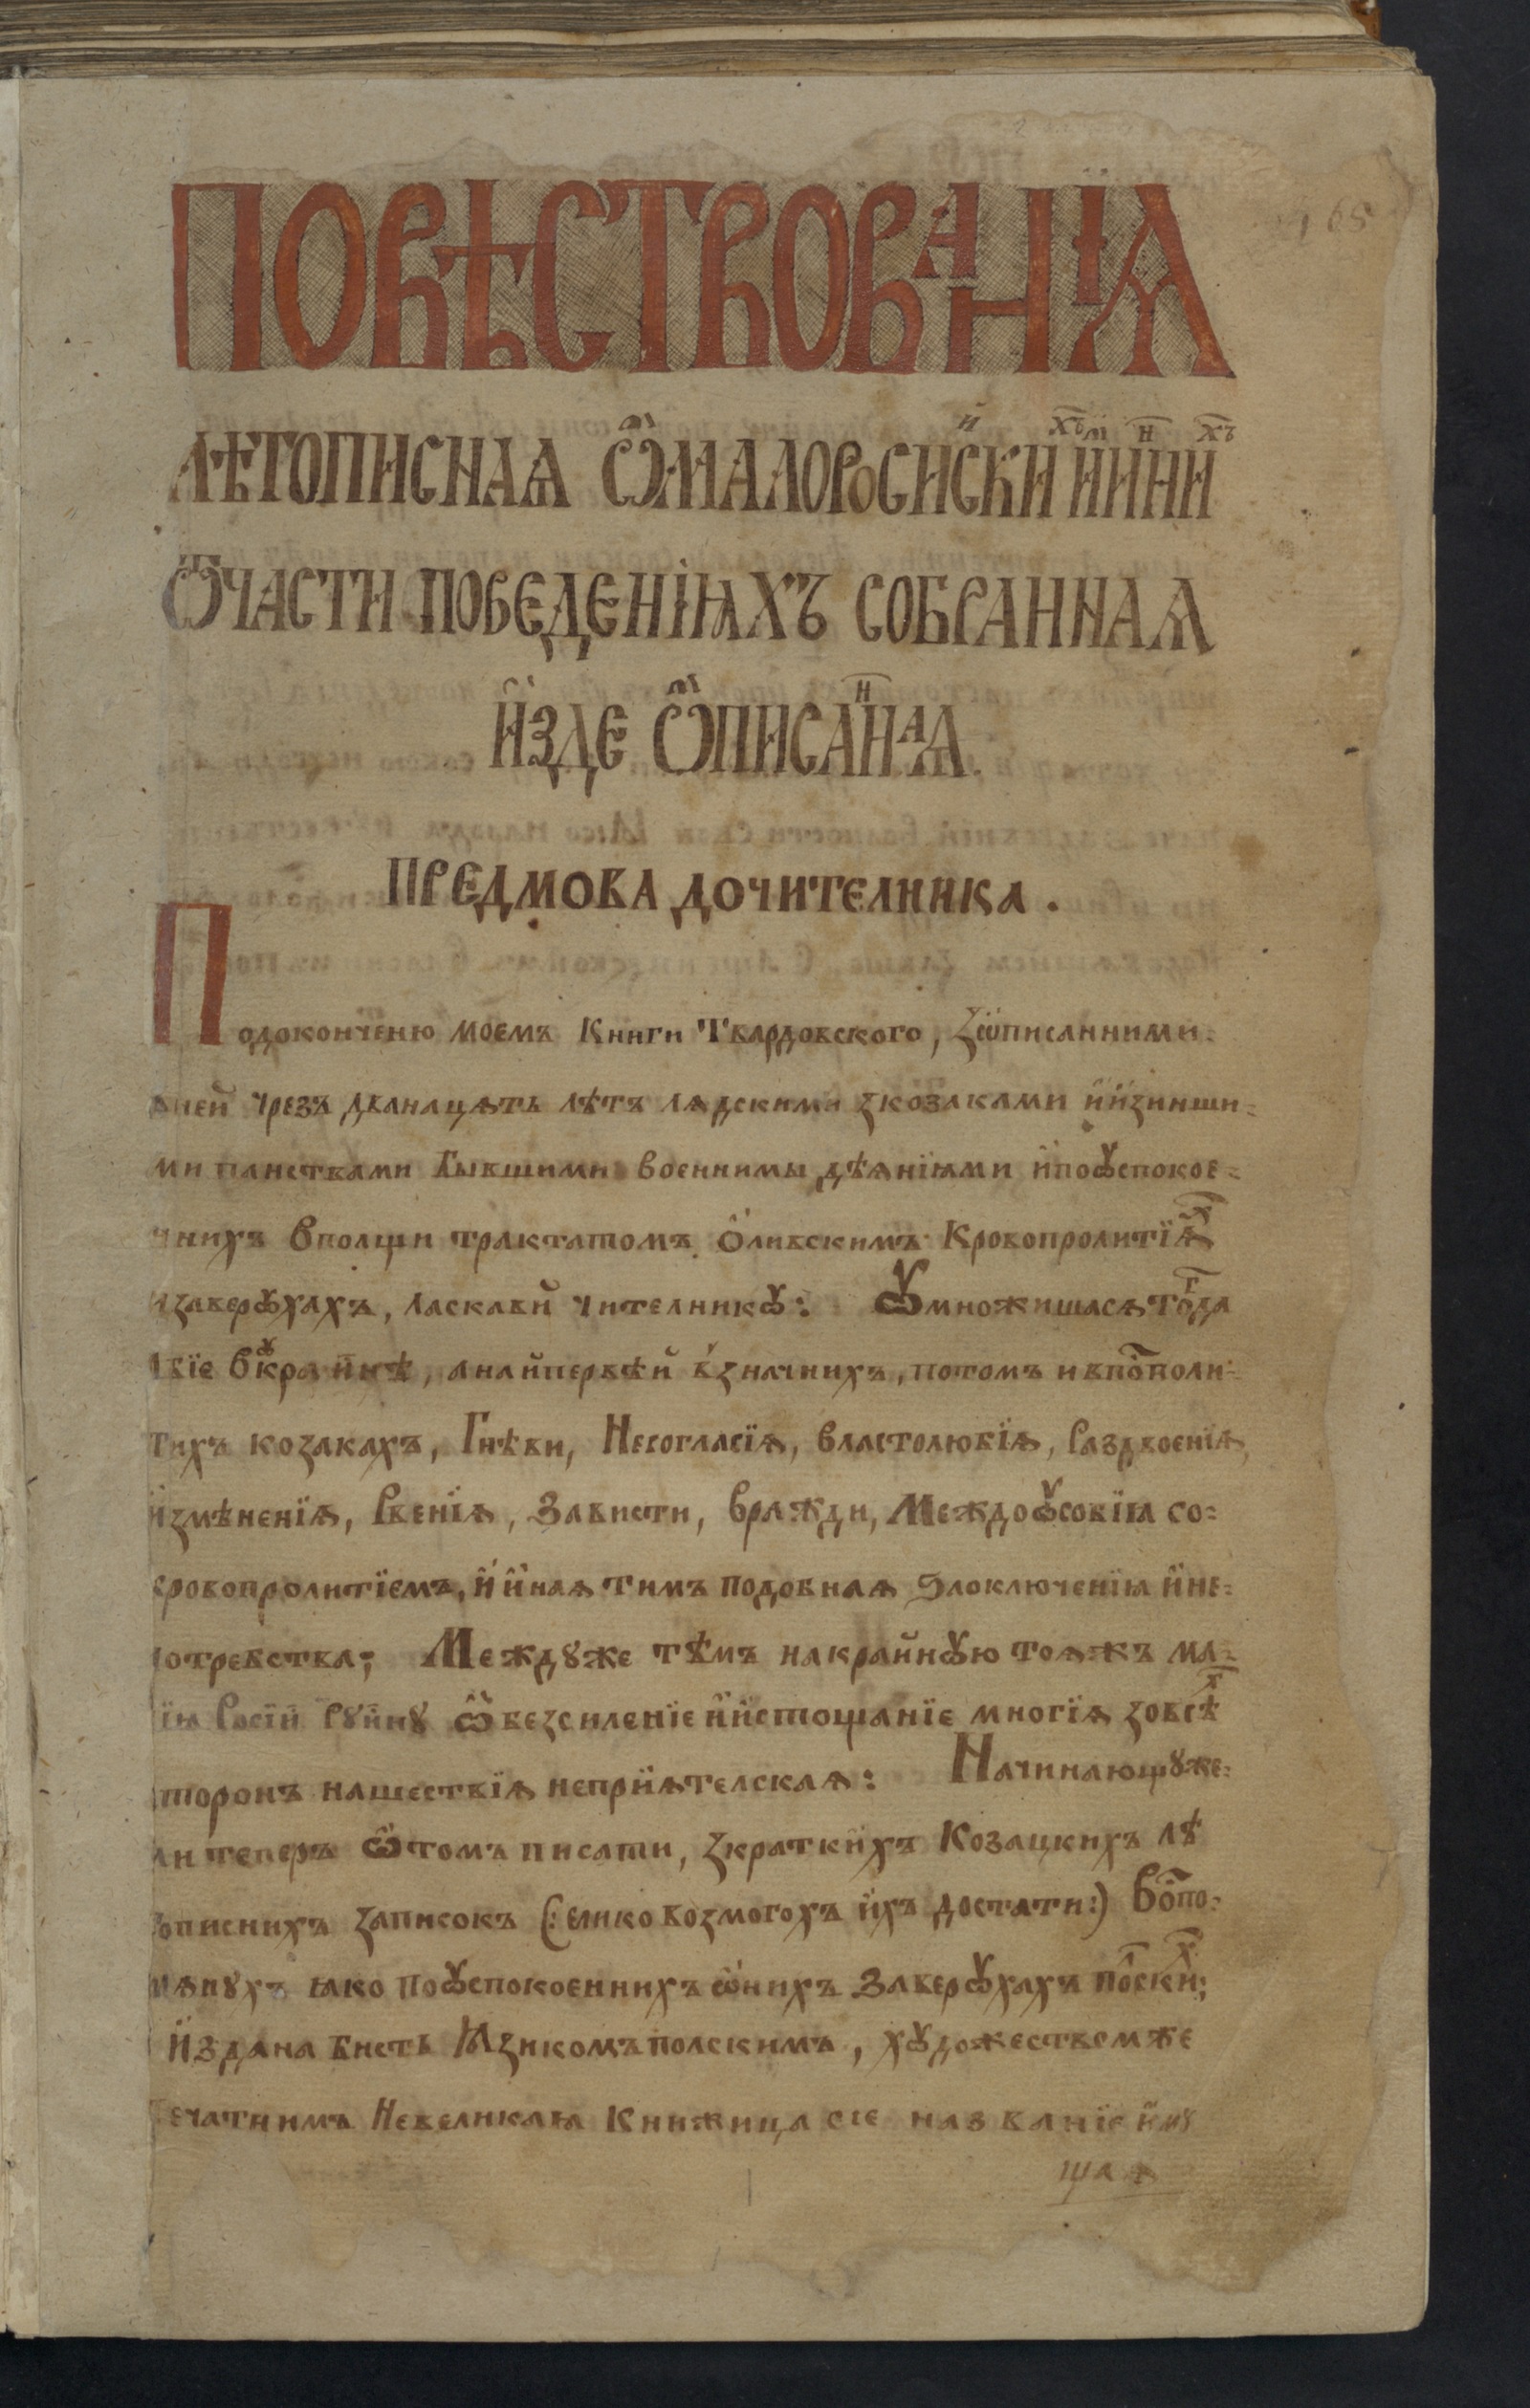 165
ПОВѢСТВОВАНІѦ
ЛѢТОПИСНАѦ Ѡ МАЛОРОСИЙСКИХЪ И ИННИХЪ
ѾЧАСТИ ПОВЕДЕНІИѦХЪ СОБРАННАѦ
И ЗДЕ ѠПИСАННАѦ.
ПРЕДМОВА ДО ЧИТЕЛНИКА.
По доконченю моемъ Книги Твардовского, зѡписанними
в ней чрезъ дванацѧть лѣтъ Лѧдскими з козаками й ӥзинши-
ми панствами бывшими военнимы дѣѧніѧми ӥ по ꙋспокое-
нихъ в полщи трактатомъ Ѡливскимъ Кровопролитїѧхъ
и заверꙋхахъ, ласкавий чителникꙋ: Ѹмножишасѧ тогда
вїе в Ꙋкрайнѣ, а найпервѣй в значнихъ, потомъ и в посполи-
тихъ козакахъ, Гнѣви, Несогласїѧ, властолюбїѧ, Раздвоенїѧ,
Ӥзмѣненїѧ, Рвенїѧ, Зависти, вражди, Междоꙋсобїꙗ со
кровопролитїемъ, й йнаѧ тимъ подобнаѧ Ѕлоключенїꙗ й не-
потребства; Междꙋже тѣмъ на крайнꙋю тоѧжъ ма-
їꙗ Росїй Рꙋйнꙋ ѡбезсиленїе й ӥстощанїе многїѧ зо всѣх
сторонъ нашествїѧ непрїѧтелскаѧ: Начинающꙋже
ми теперъ ѡ томъ писати, з краткихъ Козацкихъ лѣ
тописнихъ записокъ (: елико возмогохъ ӥхъ достати:) Воспо-
мѧнꙋхъ ꙗко по ꙋспокоеннихъ ѡнихъ Заверꙋхахъ полскихъ;
Ӥздана бисть Ꙗзикомъ полскимъ, хꙋдожествомже
Печатнимъ Невеликаꙗ Книжица сїе названїе ймꙋ
щаѧ